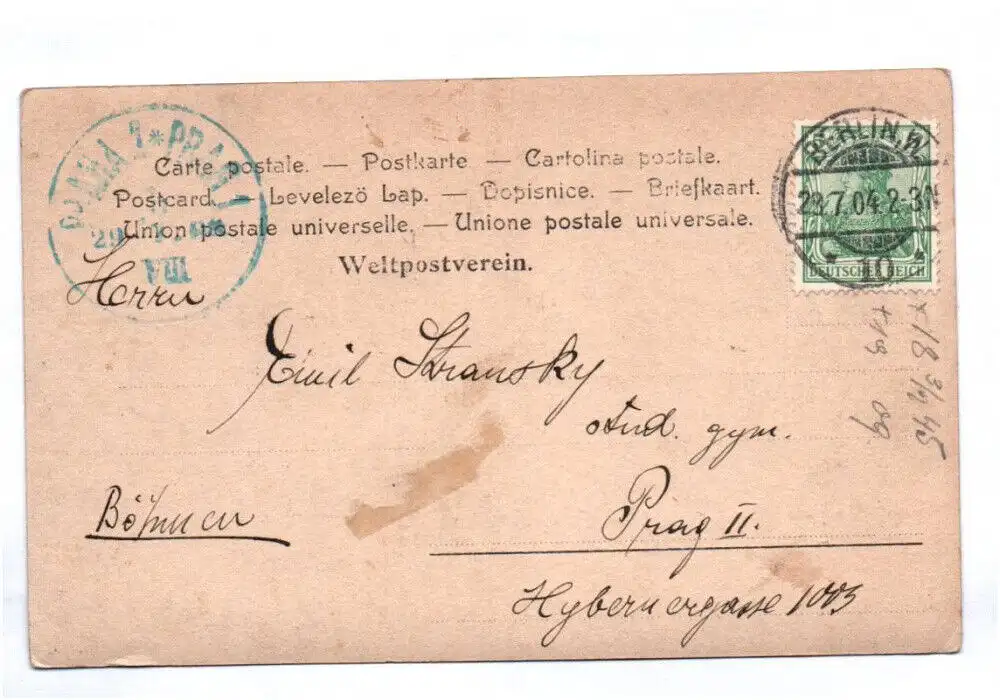 Carte postale. — Postkarte — Cartolina postale.
Postcard. — Levelezö Lap. — Dopisnice. — Briefkaart.
Union postale universelle. — Unione postale universale.
Weltpostverein.
BERLIN, W.
7.04 2-3N
* 10 *
DEUTSCHES REICH
PRAG 1
29
Herrn
Emil Stransky
stud. gym.
Prag II.
Böhmen
Hybernergasse 1003